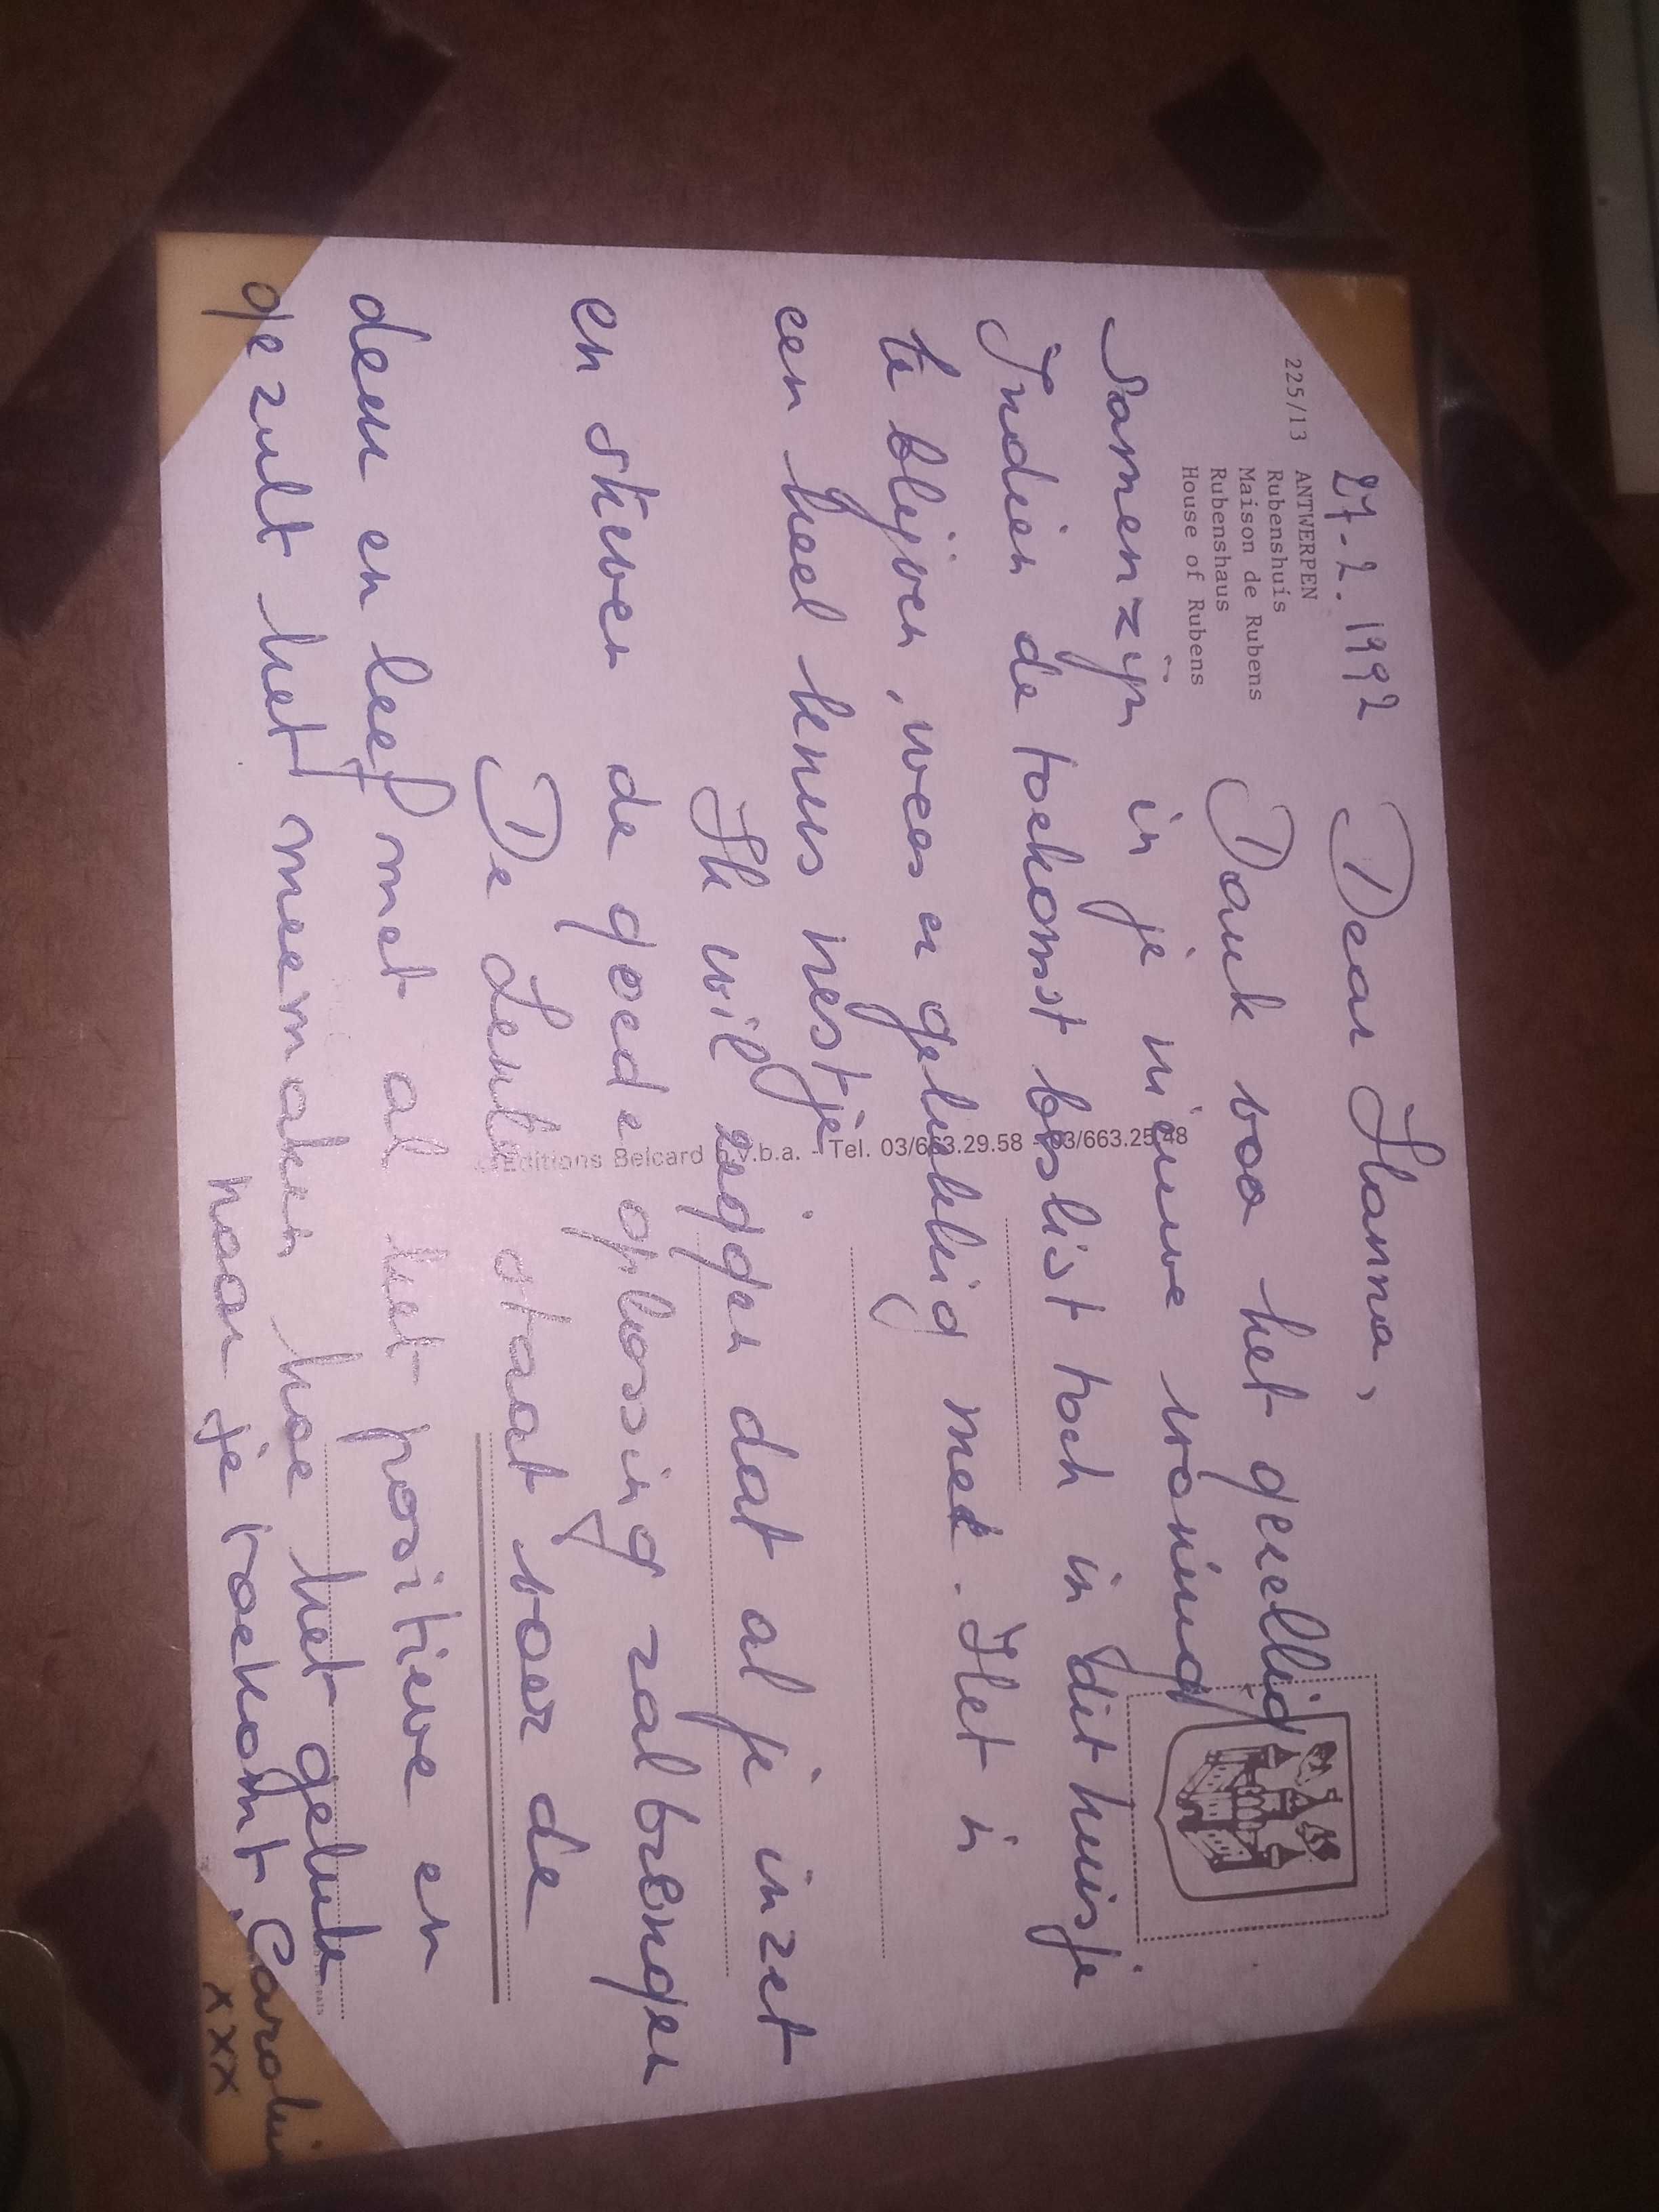 27-2.1992
Dear Hanna,
225/13 ANTWERPEN
Rubenshuis
Maison de Rubens
Rubenshaus
House of Rubens
Dank voor het gezellig
samenzijn in je nieuwe woning
Indien de toekomst beslist toch in dit huisje
te blijven, wees er gelukkig mee. Het is
een heel knus nestje
Ik wil zeggen dat al je inzet
en streven de goede oplossing zal brengen
De Lente staat voor de
deur en leef met al het positieve en
je zult het meemaken hoe het geluk
naar je toekomt. Carolin
xxx
Editions Belcard b.v.b.a. - Tel. 03/663.29.58 - 03/663.25.48